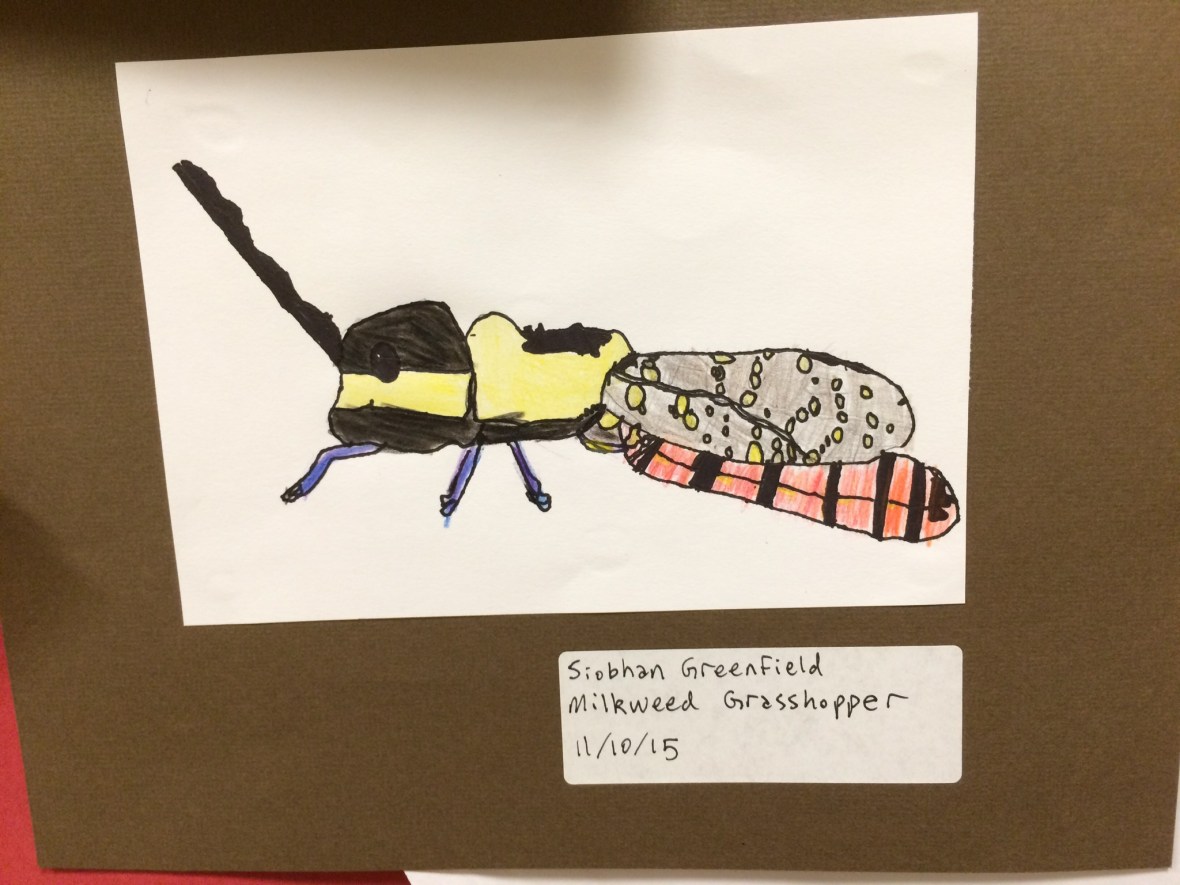 Siobhan Greenfield
Milkweed Grasshopper
11/10/15